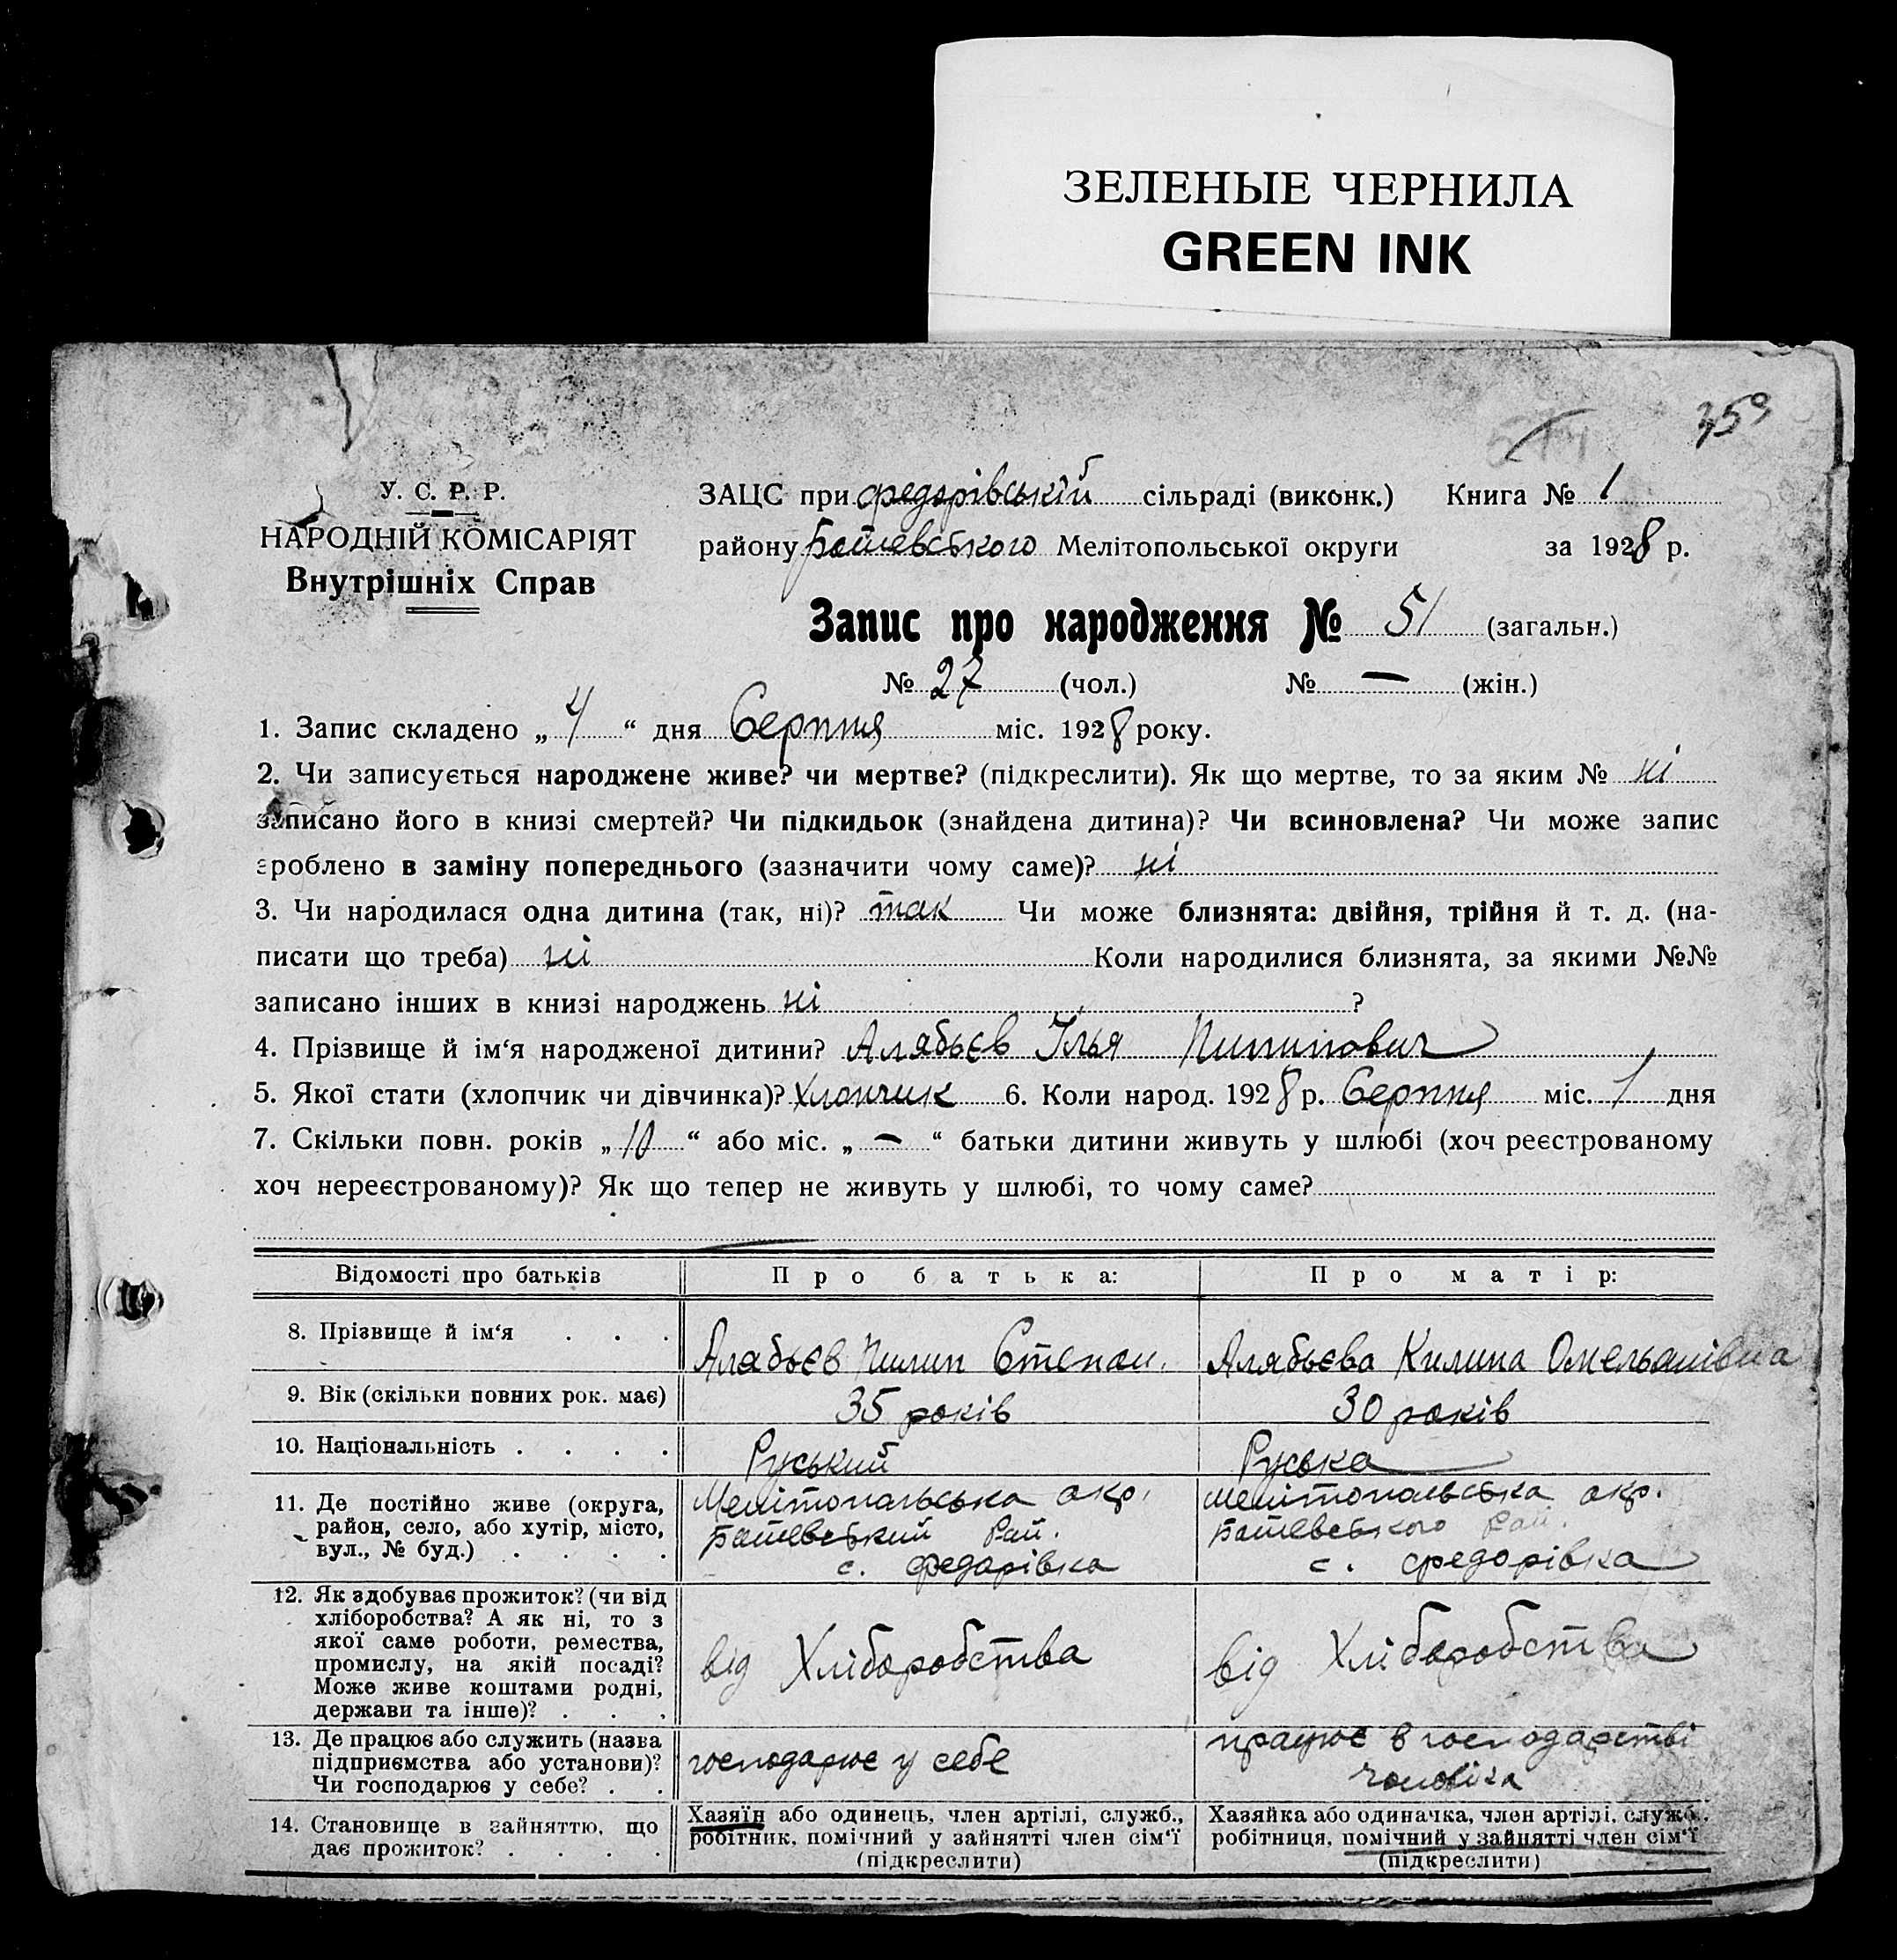 ЗЕЛЕНЫЕ ЧЕРНИЛА
GREEN INK
359
У. С. Р. Р.
НАРОДНІЙ КОМІСАРІЯТ
Внутрішніх Справ
ЗАЦС при Федорівській сільраді (виконк.) Книга № 1
району Мелітопольської округи за 1928 р.
Запис про народження № 51 (загальн.)
№ 27 (чол.) № — (жін.)
1. Запис складено „ 4 “ дня Серпня міс. 1928 року.
2. Чи записується народжене живе? чи мертве? (підкреслити). Як що мертве, то за яким № ні
записано його в книзі смертей? Чи підкидьок (знайдена дитина)? Чи всиновлена? Чи може запис
зроблено в заміну попереднього (зазначити чому саме)? ні
3. Чи народилася одна дитина (так, ні)? так Чи може близнята: двійня, трійня й т. д. (на-
писати що треба) ні Коли народилися близнята, за якими №№
записано інших в книзі народжень ні ?
4. Прізвище й ім‘я народженої дитини? Алябьєв Ілья Пилипович
5. Якої стати (хлопчик чи дівчинка)? Хлопчик 6. Коли народ. 1928 р. Серпня міс. 1 дня
7. Скільки повн. років „ 10 “ або міс. „ — “ батьки дитини живуть у шлюбі (хоч реєстрованому
хоч нереєстрованому)? Як що тепер не живуть у шлюбі, то чому саме?
Відомості про батьків Про батька: Про матір:
8. Прізвище й ім‘я . . . Алябьєв Пилип Степан. Алябьєва Килина Омельянівна
9. Вік (скільки повних рок. має) 35 років 30 років
10. Національність . . . . Руський Руська
11. Де постійно живе (округа, район, село, або хутір, місто, вул., № буд.) . . . .
Мелітопольська окр.
Рай.
с. Федорівка
Мелітопольська окр.
Рай.
с. Федорівка
12. Як здобуває прожиток? (чи від
хліборобства? А як ні, то з
якої саме роботи, ремества,
промислу, на якій посаді?
Може живе коштами родні,
держави та інше)? . . .
від Хліборобства
від Хліборобства
13. Де працює або служить (назва
підприємства або установи)?
Чи господарює у себе? . .
господарює у себе
працює в господарстві
чоловіка
14. Становище в зайняттю, що
дає прожиток? . . . .
Хазяїн або одинець, член артілі, служб.,
робітник, помічний у зайнятті член сім‘ї
(підкреслити)
Хазяйка або одиначка, член артілі, служб.,
робітниця, помічний у зайнятті член сім‘ї
(підкреслити)